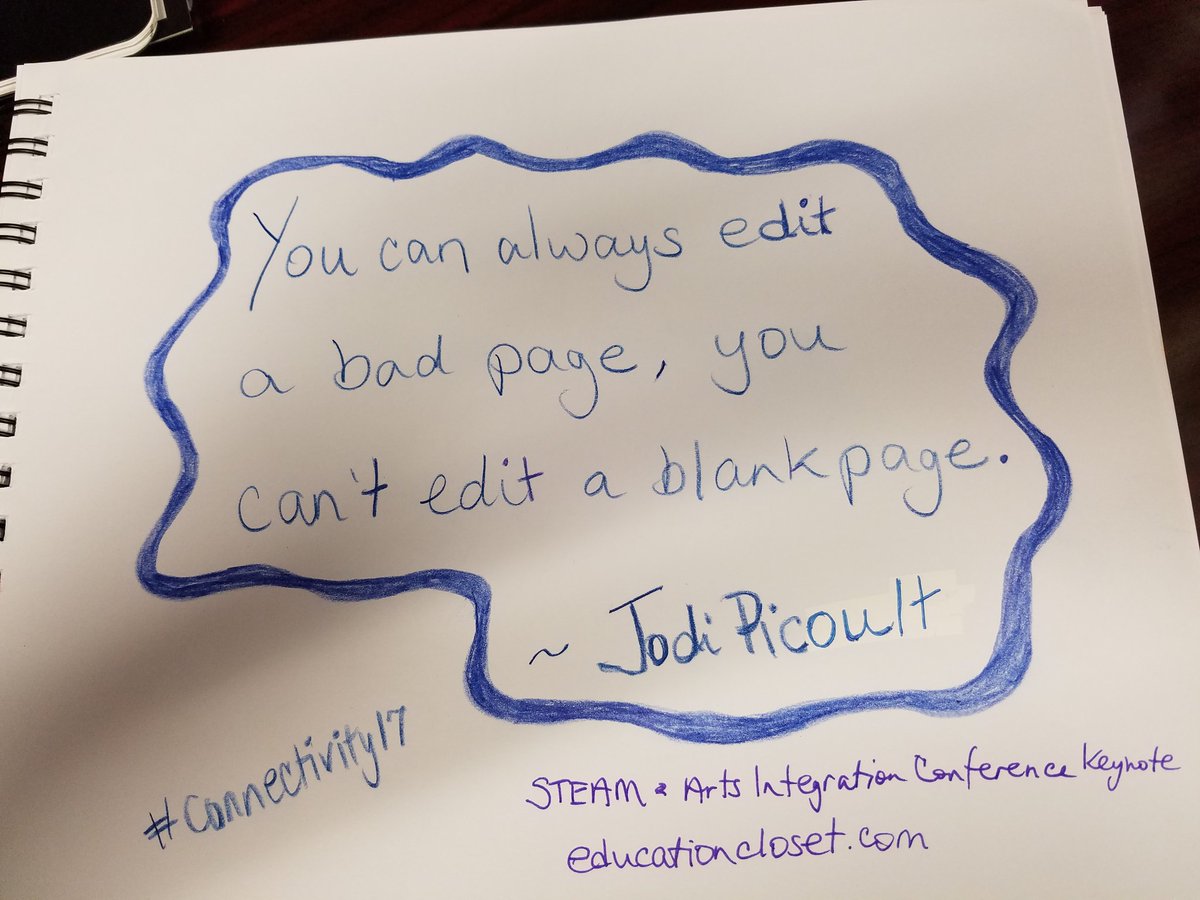 You can always edit
a bad page, you
can't edit a blank page.
~ Jodi Picoult
#Connectivity17
STEAM & Arts Integration Conference Keynote
educationcloset.com